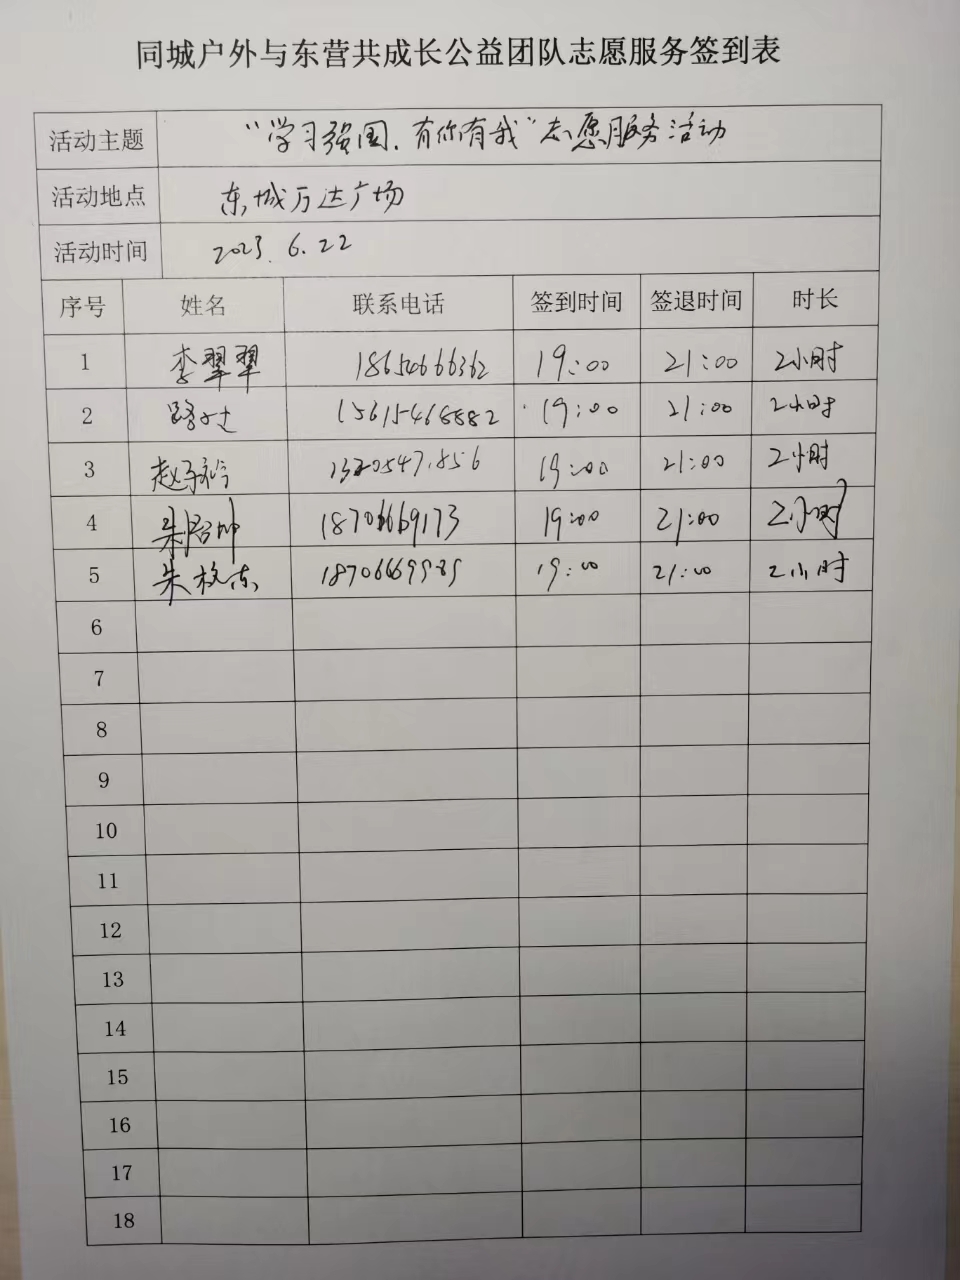 同城户外与东营共成长公益团队志愿服务签到表
活动主题 "学习强国.有你有我"志愿服务活动
活动地点 东城万达广场
活动时间 2023.6.22
序号 姓名 联系电话 签到时间 签退时间 时长
1 李翠翠 18654666362 19:00 21:00 2小时
2 15615468882 19:00 21:00 2小时
3 赵 19:00 21:00 2小时
4 朱 18706669173 19:00 21:00 2小时
5 朱 19:00 21:00 2小时
6
7
8
9
10
11
12
13
14
15
16
17
18